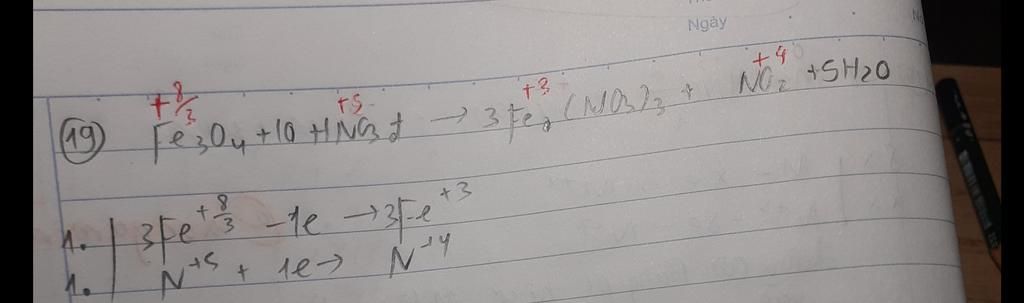 Ngày
+8/3 +5 +3 +4
(19) Fe3O4 + 10 HNO3đ → 3Fe(NO3)3 + NO2 + 5H2O
1. | 3Fe^+8/3 - 1e → 3Fe^+3
1. | N^+5 + 1e → N^+4